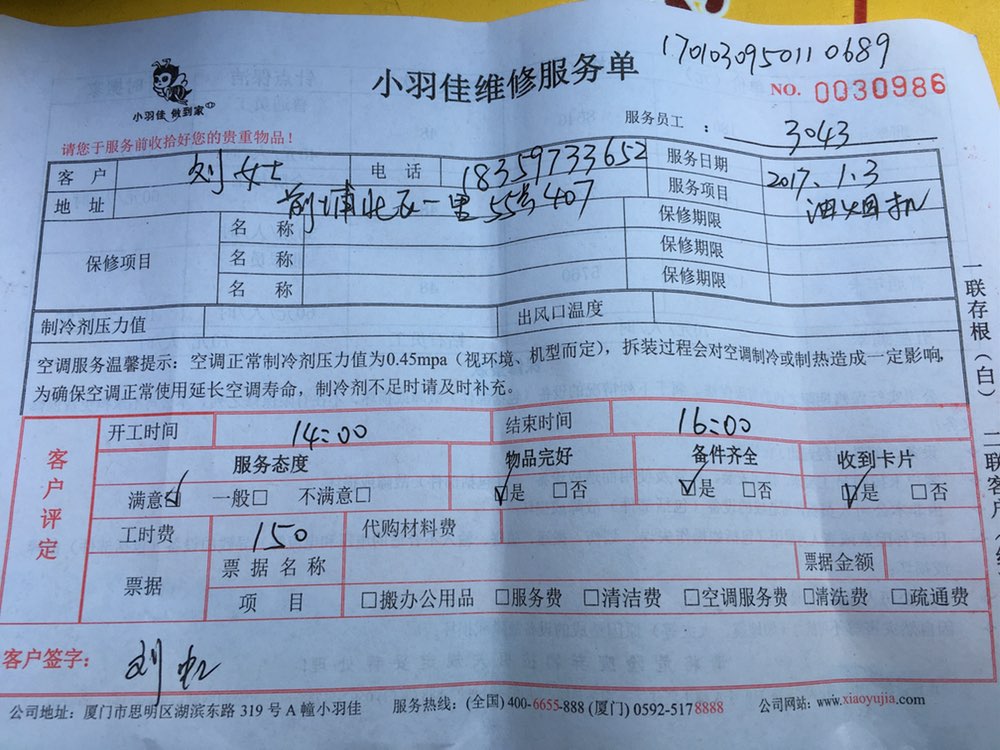 170103095011 0689
小羽佳 做到家
小羽佳维修服务单
NO. 0030986
服务员工 : 3043
请您于服务前收拾好您的贵重物品!
客户 刘女士 电话 18359733652 服务日期 2017.1.3
地址 前埔北区一里55号407 服务项目 油烟机
保修项目 名称 保修期限
名称 保修期限
名称 保修期限
制冷剂压力值 出风口温度
空调服务温馨提示：空调正常制冷剂压力值为0.45mpa（视环境、机型而定），拆装过程会对空调制冷或制热造成一定影响,
为确保空调正常使用延长空调寿命，制冷剂不足时请及时补充。
一联存根（白）
二联客户
客户评定
开工时间 14:00 结束时间 16:00
服务态度 物品完好 备件齐全 收到卡片
满意☑ 一般□ 不满意□ ☑是 □否 ☑是 □否 ☑是 □否
工时费 150 代购材料费
票据 票据名称 票据金额
项目 □搬办公用品 □服务费 □清洁费 □空调服务费 □清洗费 □疏通费
客户签字: 刘虹
公司地址: 厦门市思明区湖滨东路 319 号 A 幢小羽佳 服务热线: (全国) 400-6655-888 (厦门) 0592-517 8888 公司网站: www.xiaoyujia.com